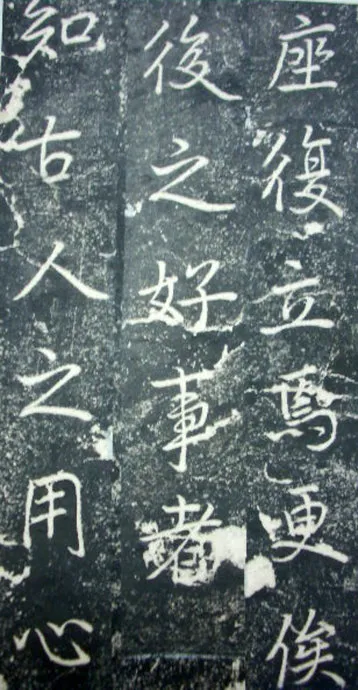 座復立焉更俟
後之好事者
知古人之用心